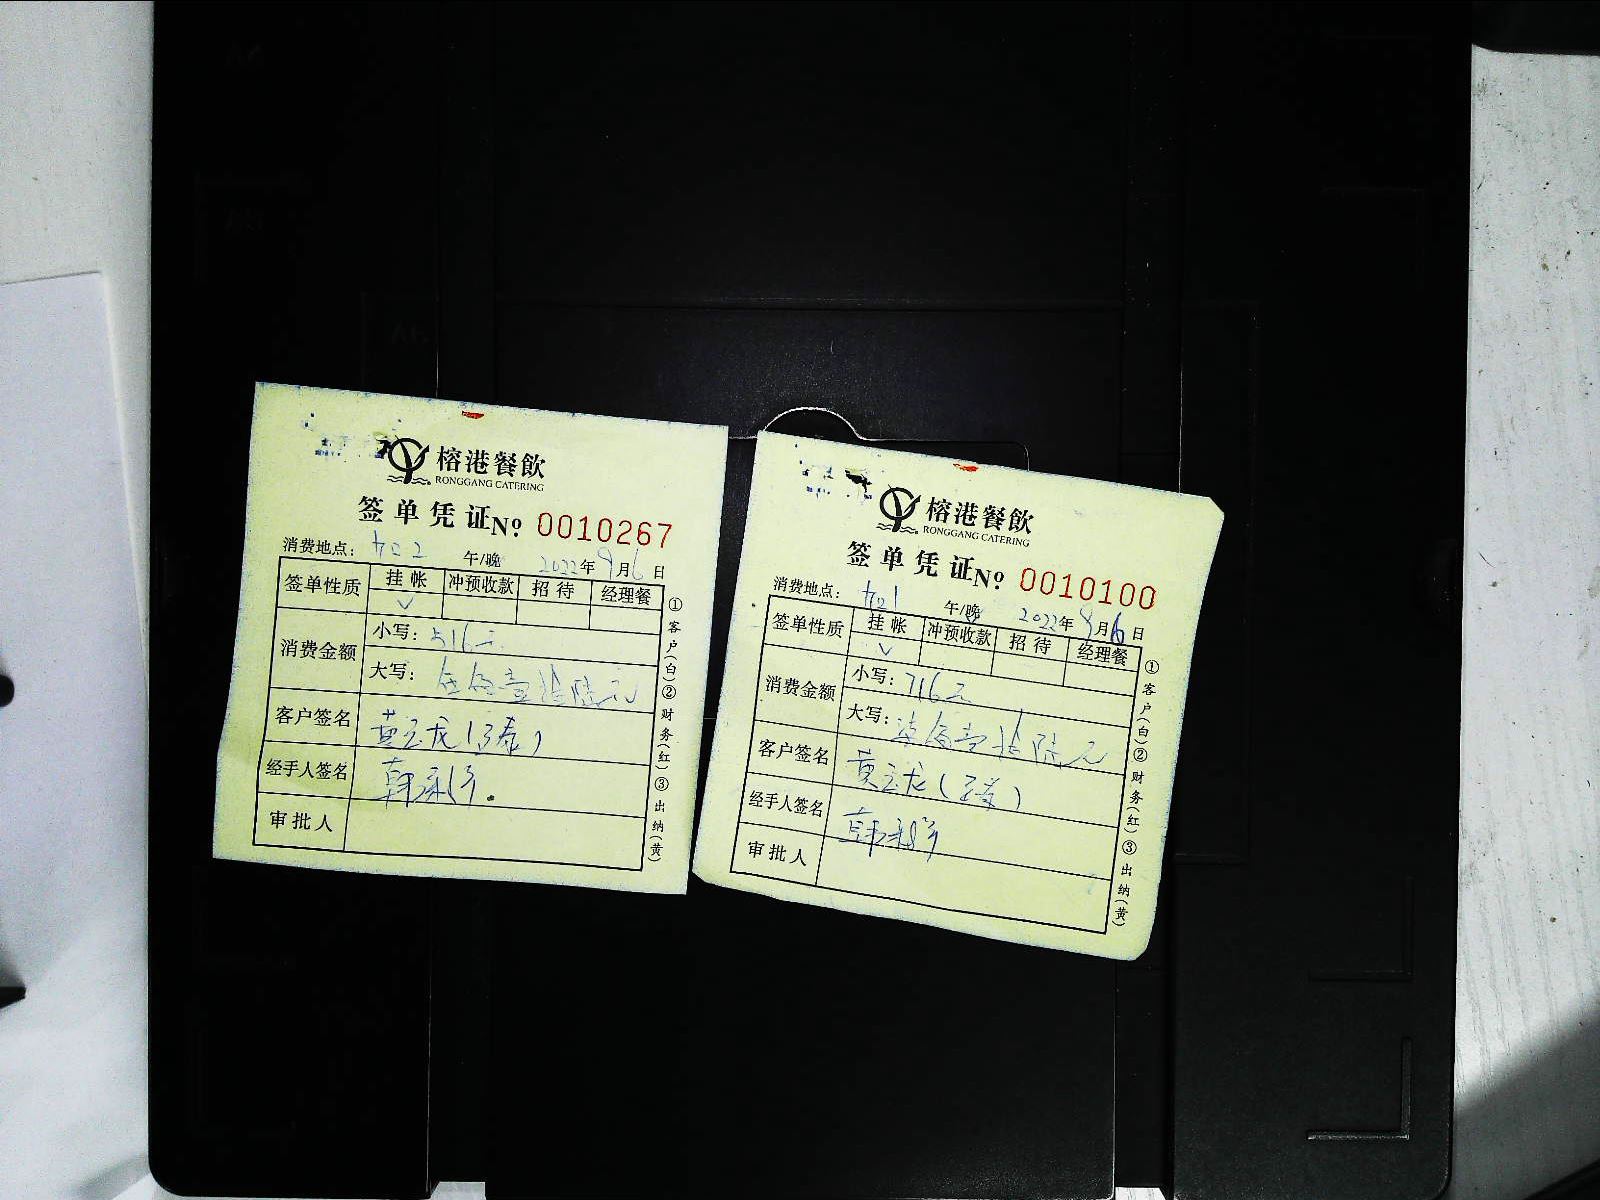 榕港餐飲
RONGGANG CATERING
签单凭证№ 0010267
消费地点： 午/晚 2022年9月6日
签单性质 挂帐 冲预收款 招待 经理餐
✓
消费金额 小写：516元
大写：伍佰壹拾陆元
客户签名 黄云龙
经手人签名 韩
审批人
①客户（白）②财务（红）③出纳（黄）
榕港餐飲
RONGGANG CATERING
签单凭证№ 0010100
消费地点： 午/晚 2022年9月6日
签单性质 挂帐 冲预收款 招待 经理餐
✓
消费金额 小写：716元
大写：柒佰壹拾陆元
客户签名 黄云龙
经手人签名 韩
审批人
①客户（白）②财务（红）③出纳（黄）